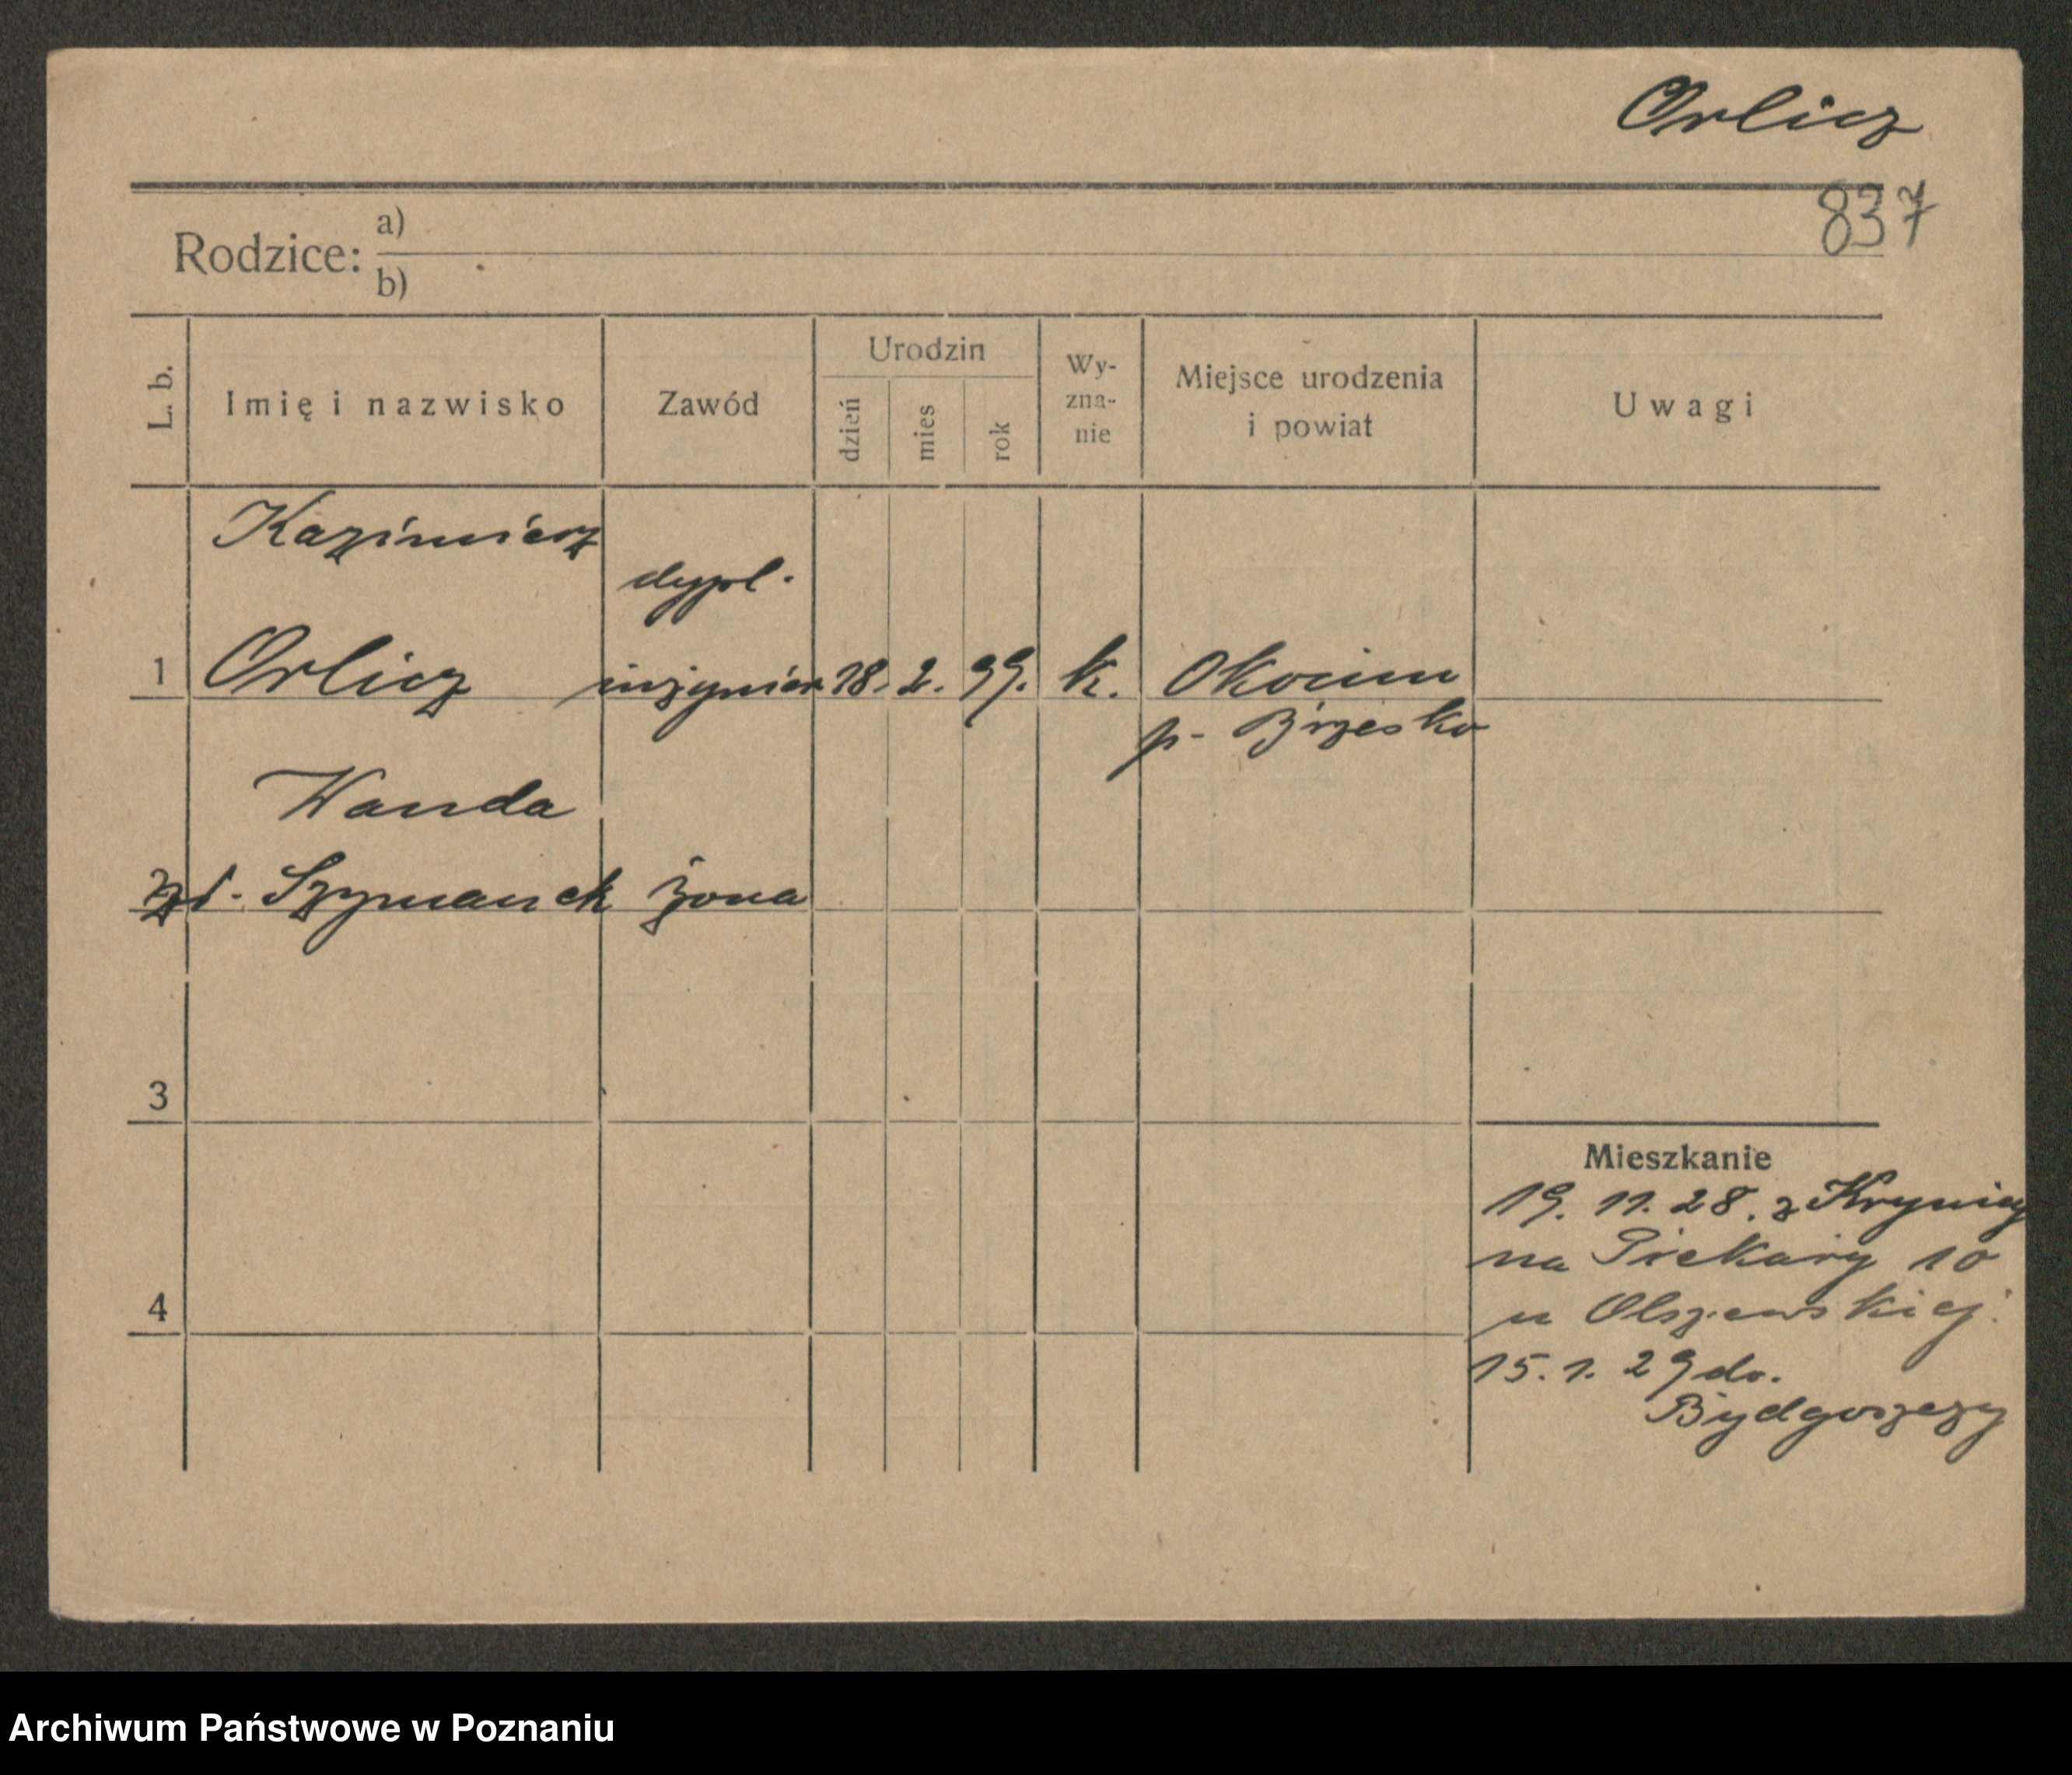 Orlicz
837
Rodzice: a)
b)
L. b.
Imię i nazwisko
Zawód
Urodzin
dzień
mies
rok
Wy-
zna-
nie
Miejsce urodzenia
i powiat
Uwagi
Kazimierz
dypl.
1 Orlicz inżynier 18. 2. 99. k. Okocim
p. Brzesko
Wanda
zd. Szymanek żona
3
Mieszkanie
19. 11. 28. z Krynicy
na Piekary 10
u Olszewskiej.
4
15. 1. 29 do.
Bydgoszczy
Archiwum Państwowe w Poznaniu